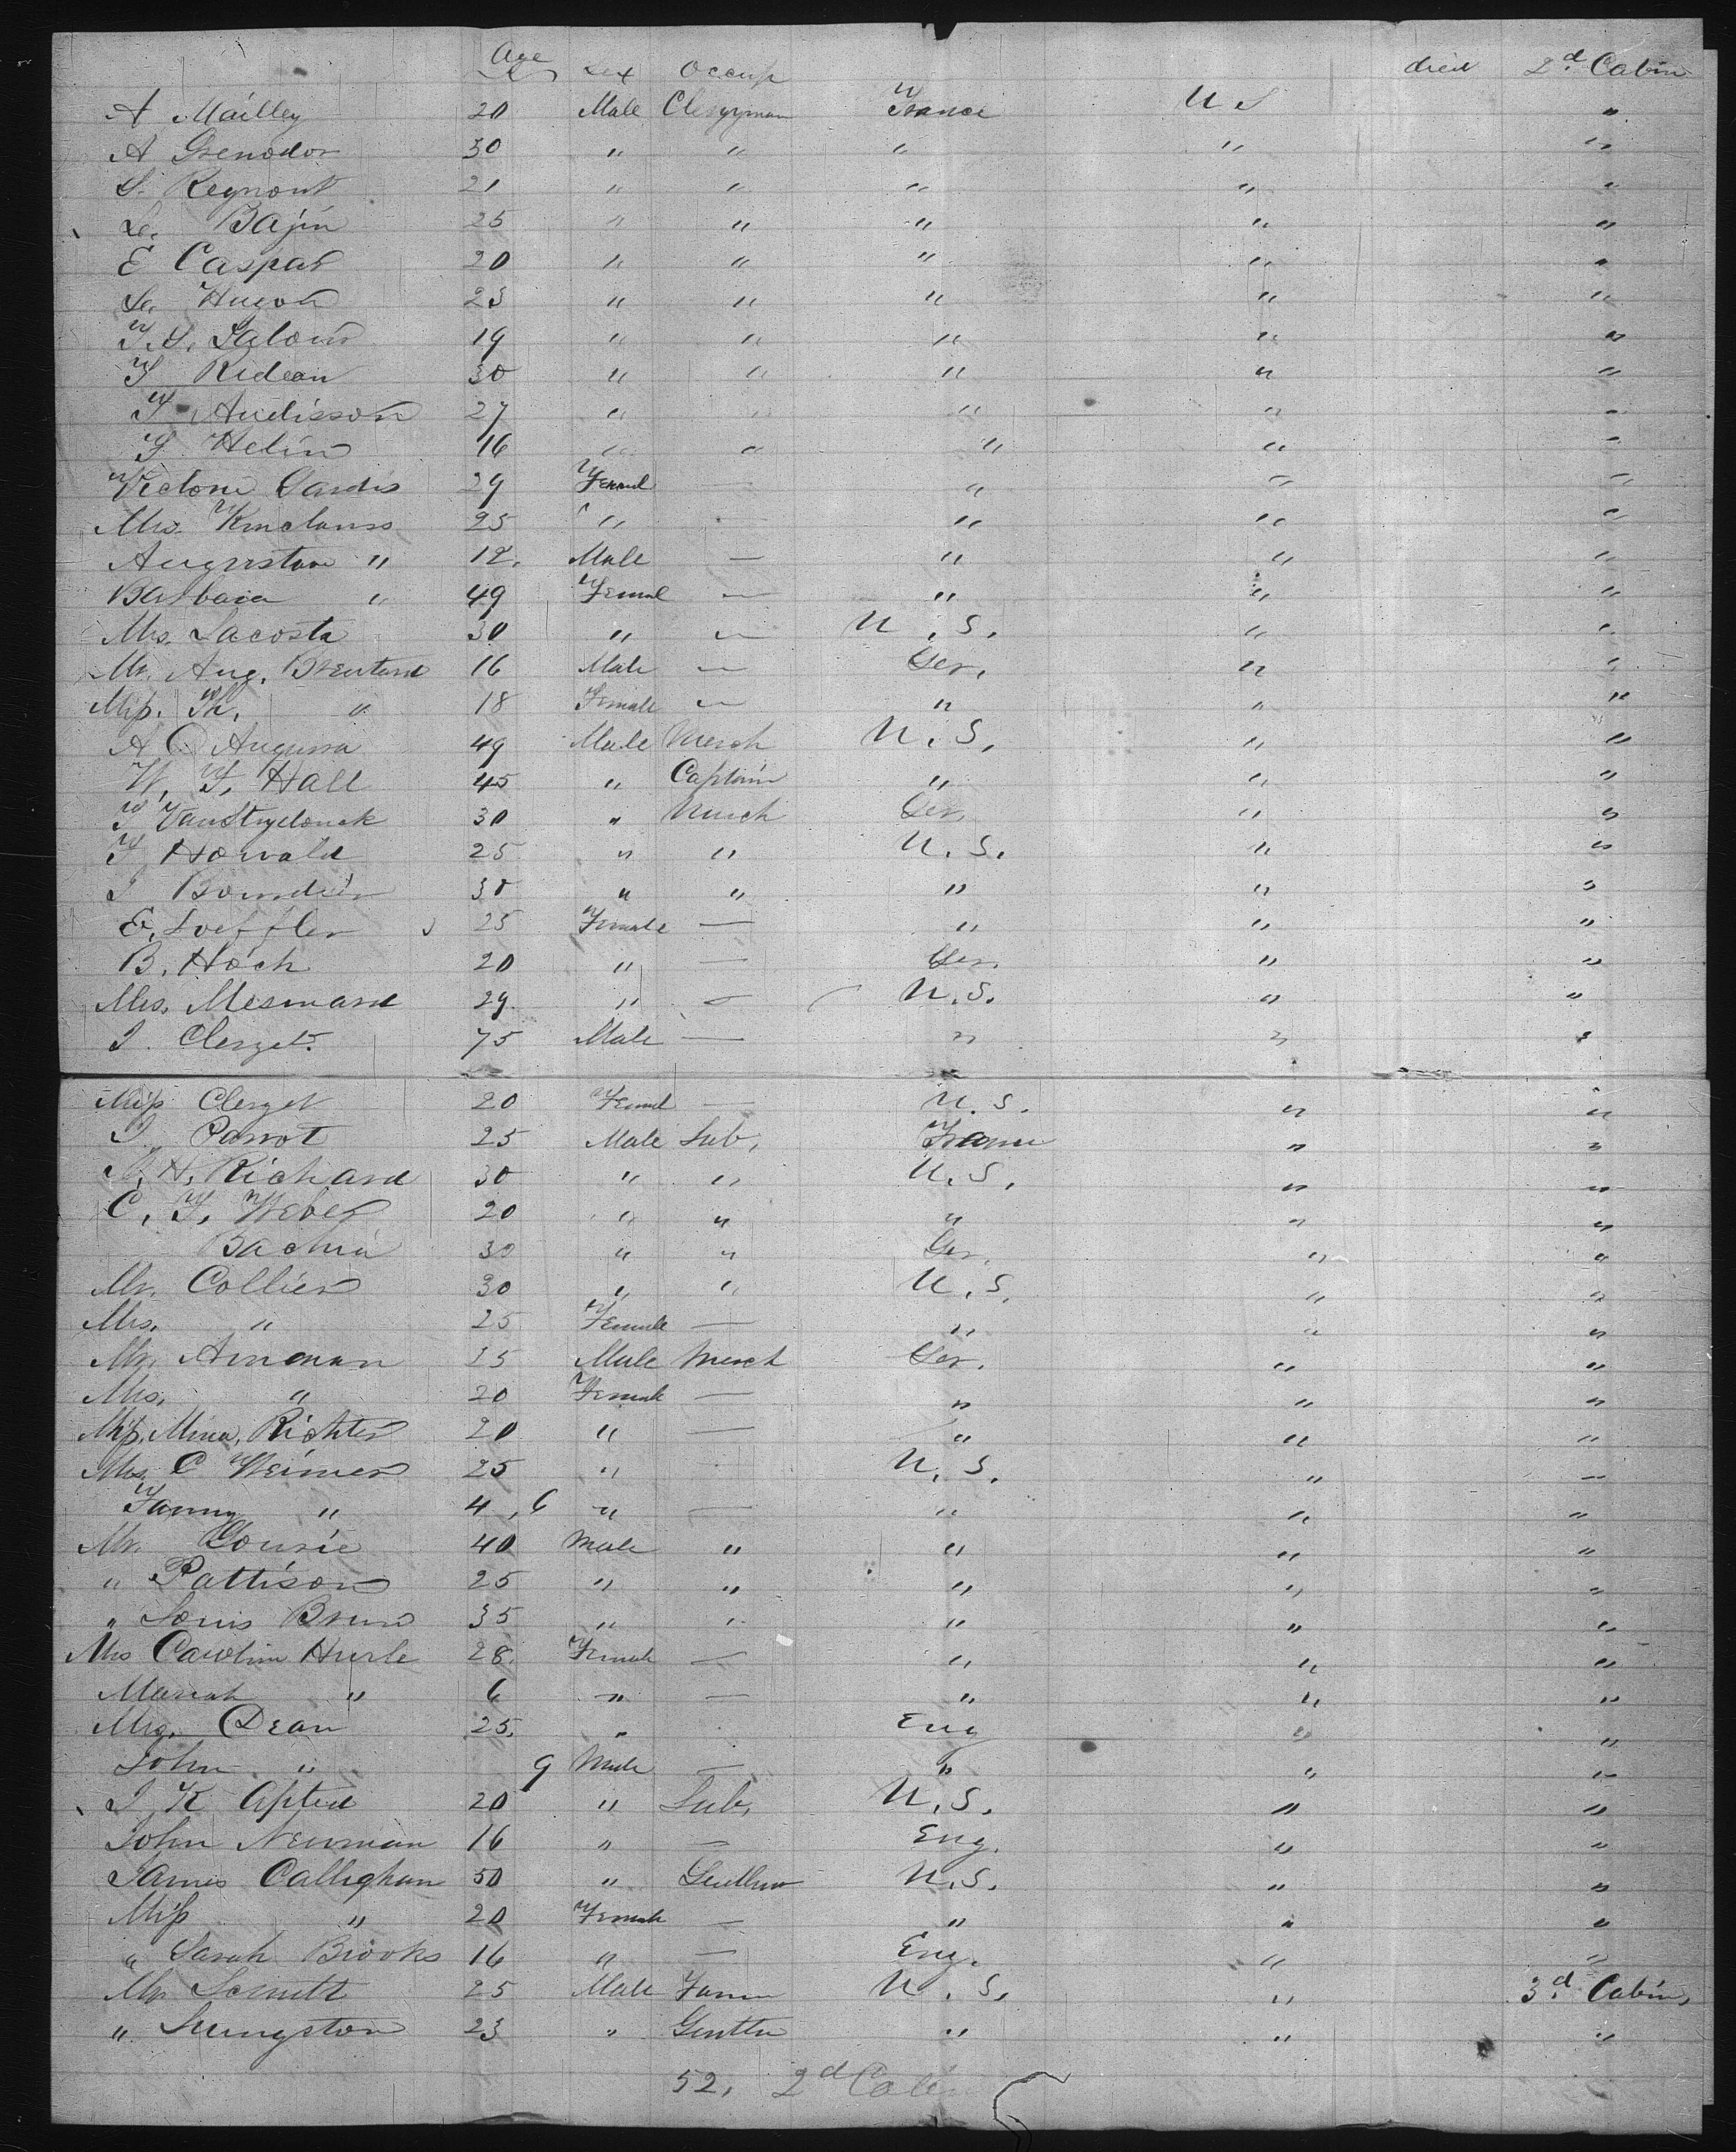 Age Sex Occup died 2d Cabin
A Mailley 20 Male Clergyman France U S "
A Grenodor 30 " " " " "
S. Regnout 21 " " " " "
Le. Bajin 25 " " " " "
E Caspar 20 " " " " "
Le. Hugon 23 " " " " "
F. S. Saloin 19 " " " " "
F Ridean 30 " " " " "
F Audisson 27 " " " " "
F Helin 16 " " " " "
Gardis 29 Femal — " " "
Mrs. 25 " — " " "
Augustan " 12. Male — " " "
Barbara " 49 Femal — " " "
Mrs. Lacosta 30 " — U. S. " "
Mr. Aug. 16 Male — Ger. " "
Miss. " 18 Female — " " "
A C 49 Male Merch U. S. " "
W. F. Hall 45 " Captain " " "
F VanStrydonck 30 " Merch Ger. " "
F Horvald 25 " " U. S. " "
J 30 " " " " "
E. Loeffler 25 Female — " " "
B. Hoch 20 " — Ger. " "
Mrs. Mesmard 29. " — U. S. " "
J. Clerget. 75 Male — " " "
Miss Clerget 20 Femal — U. S. " "
J. Parrot 25 Male Lab. France " "
H. Richard 30 " " U. S. " "
C. F. Weber 20 " " " " "
30 " " Ger. " "
Mr. Collier 30 " " U. S. " "
Mrs. " 25 Female — " " "
Mr. Amman 25 Male Merch Ger. " "
Mrs. " 20 Female — " " "
Miss. Mina. Richter 20 " — " " "
Mrs. C Weimer 25 " U. S. " "
Fanny " 4, 6 " — " " "
Mr. 40 Male " " " "
" Pattison 25 " " " " "
" Louis Brun 35 " " " " "
Mrs Carolin Hurle 28. Female — " " "
Mariah " 6 " — " " "
Mrs. Dean 25. " Eng " "
John " 9 Male — " " "
J. K Apted 20 " Lab. U. S. " "
John Newman 16 " — Eng. " "
James Callighan 50 " U. S. " "
Miss " 20 Female — " " "
" Sarah Brooks 16 " — Eng. " "
Mr 25 Male Farm U. S. " 3d Cabin,
" Livingston 23 " " " "
52, 2d Cabin